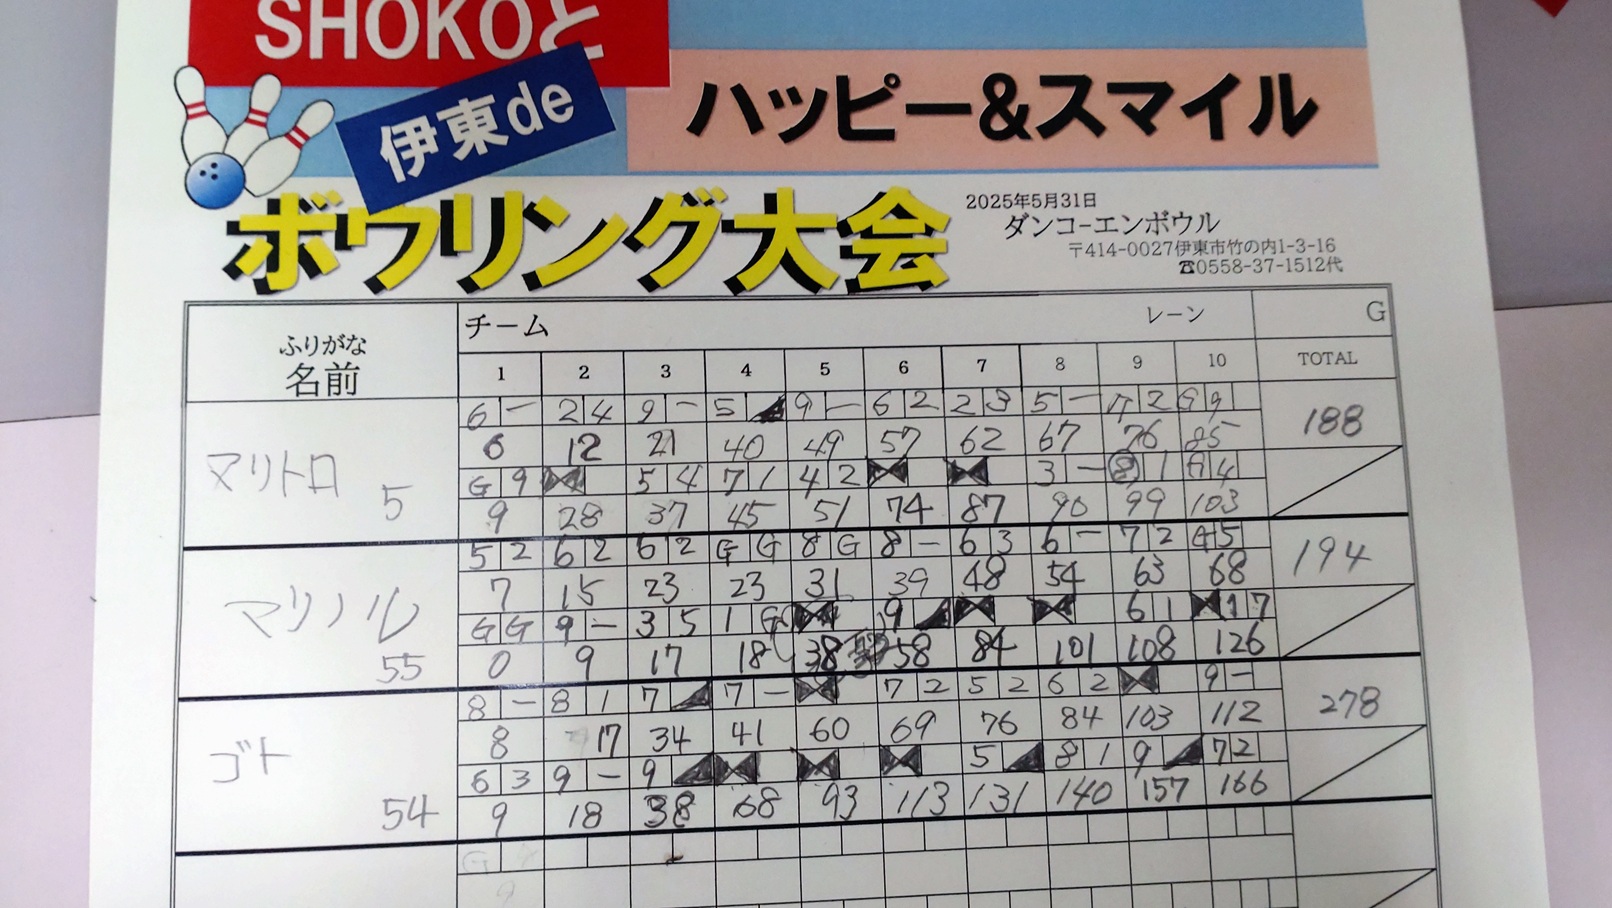 SHOKOと
伊東de
ハッピー&スマイル
ボウリング大会
2025年5月31日
ダンコーエンボウル
〒414-0027伊東市竹の内1-3-16
☎0558-37-1512代
ふりがな
名前
チーム レーン G
1 2 3 4 5 6 7 8 9 10 TOTAL
6 - 2 4 9 - 5 ◢ 9 - 6 2 2 3 5 - 7 2 G 9
マリトロ 5
6 12 21 40 49 57 62 67 76 85 188
G 9 ⧓ 5 4 7 1 4 2 ⧓ ⧓ 3 - 8 1 4
9 28 37 45 51 74 87 90 99 103
5 2 6 2 6 2 G G 8 G 8 - 6 3 6 - 7 2 5
マリノル 55
7 15 23 23 31 39 48 54 63 68 194
G G 9 - 3 5 1 G ⧓ 9 ◢ ⧓ ⧓ 6 1 ⧓ 1 7
0 9 17 18 38 58 84 101 108 126
8 - 8 1 7 ◢ 7 - ⧓ 7 2 5 2 6 2 ⧓ 9 -
ゴト 54
8 17 34 41 60 69 76 84 103 112 278
6 3 9 - 9 ◢ ⧓ ⧓ ⧓ 5 ◢ 8 1 9 ◢ 7 2
9 18 38 68 93 113 131 140 157 166
G
9